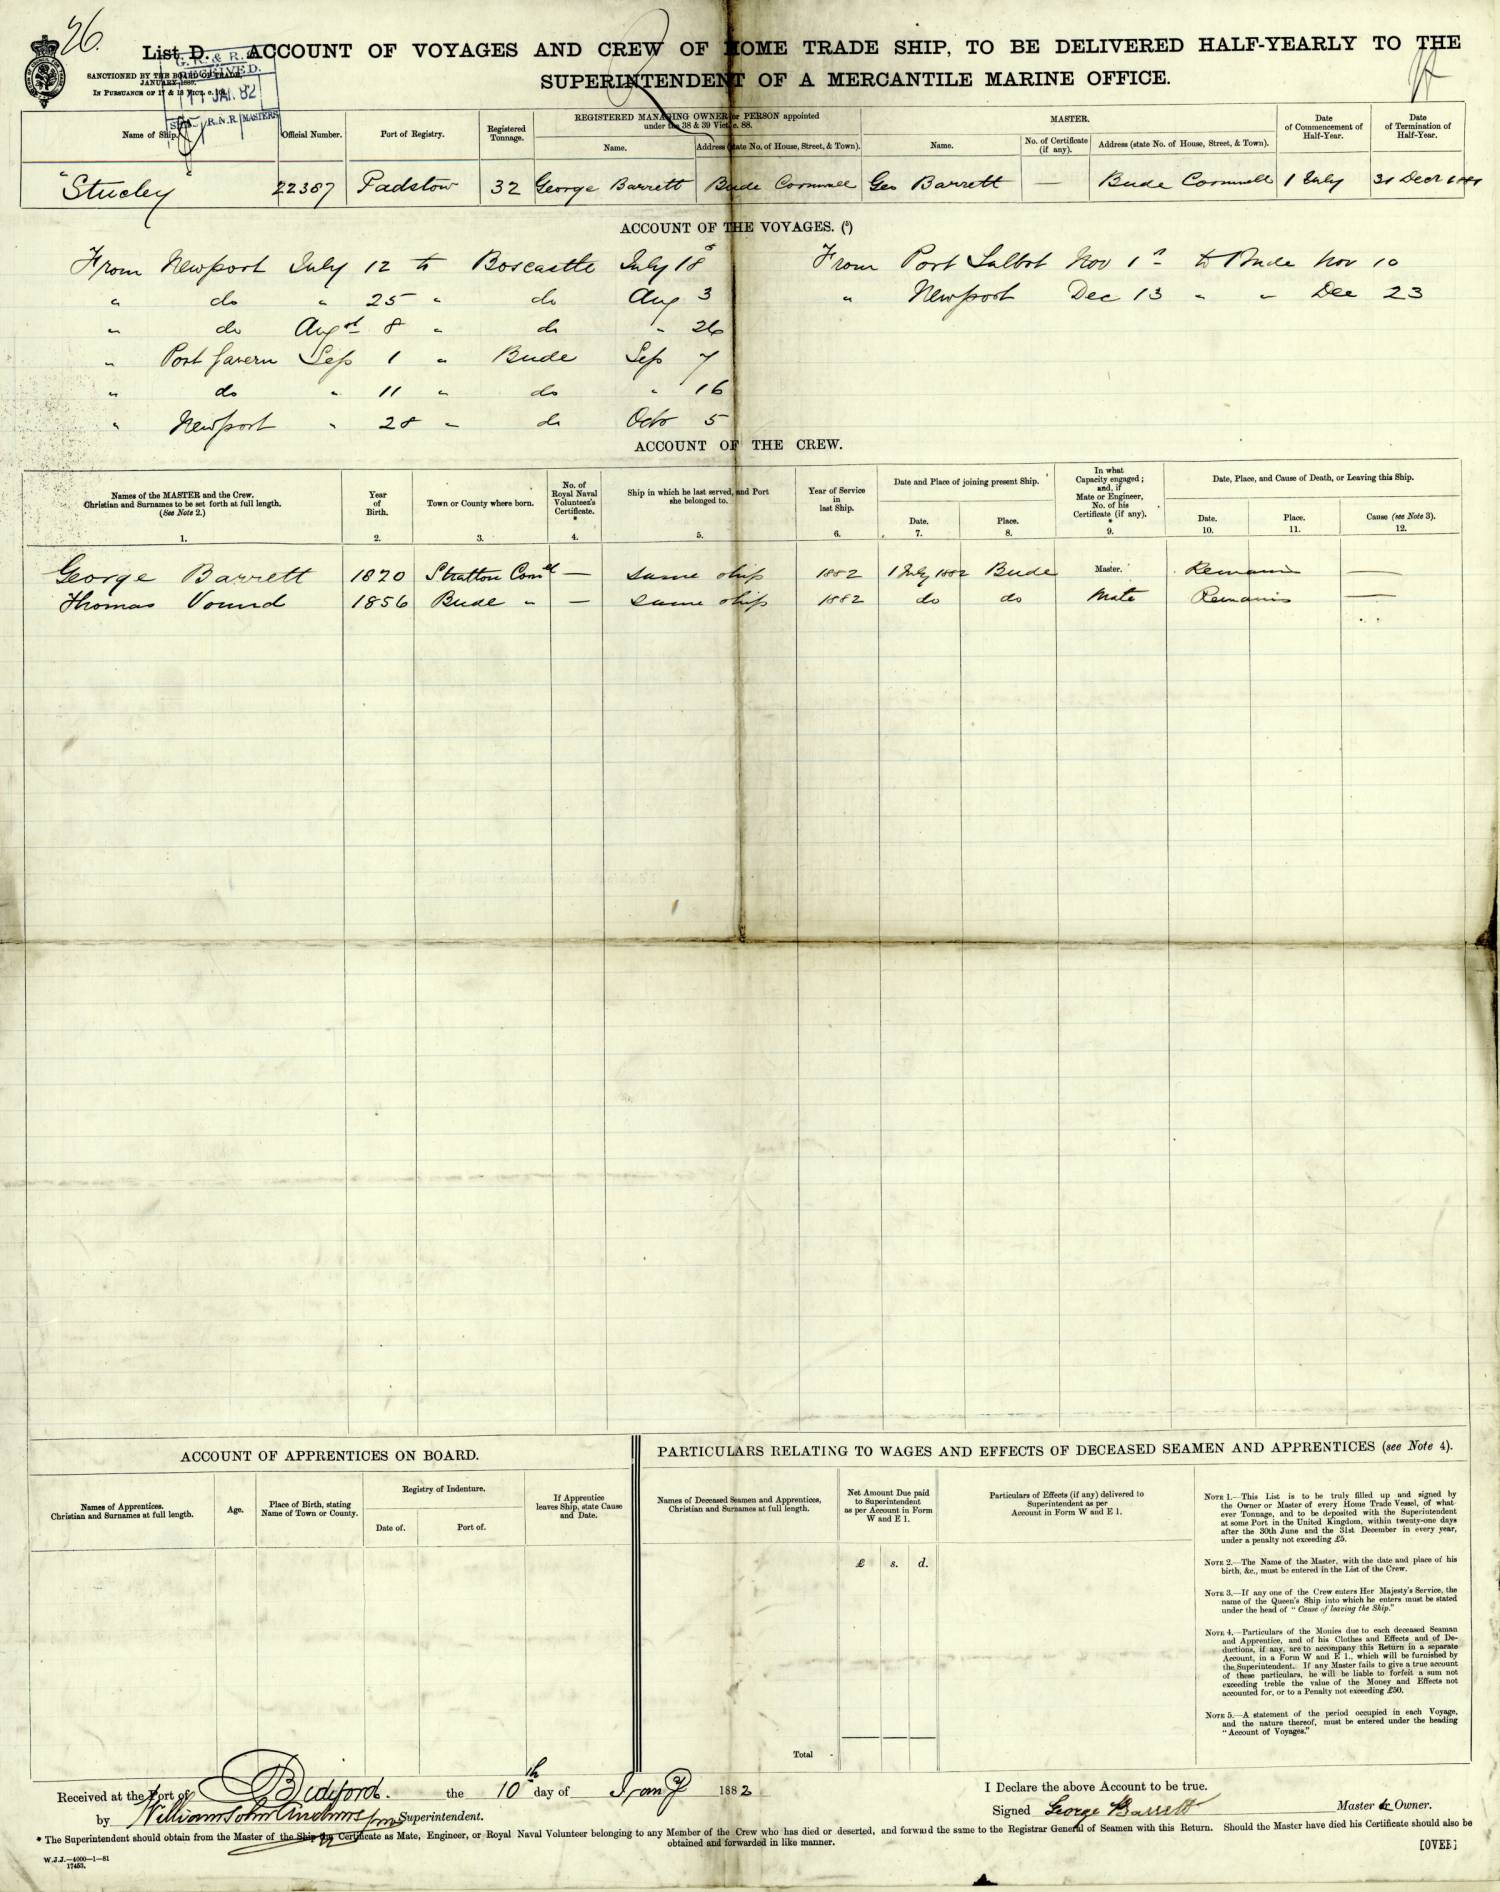 26.
List D. ACCOUNT OF VOYAGES AND CREW OF HOME TRADE SHIP, TO BE DELIVERED HALF-YEARLY TO THE
SUPERINTENDENT OF A MERCANTILE MARINE OFFICE.
SANCTIONED BY THE BOARD OF TRADE
JANUARY
IN PURSUANCE OF 17 & 18 VICT. c. 104
G. R. & R.
RECEIVED.
11 JAN. 82
R.N.R MASTERS
Name of Ship. Official Number. Port of Registry. Registered Tonnage. REGISTERED MANAGING OWNER or PERSON appointed under the 38 & 39 Vict. c. 88. MASTER. Date of Commencement of Half-Year. Date of Termination of Half-Year.
Name. Address (state No. of House, Street, & Town). Name. No. of Certificate (if any). Address (state No. of House, Street, & Town).
"Stucley" 22367 Padstow 32 George Barrett Bude Cornwall Geo Barrett — Bude Cornwall 1 July 31 Decr
ACCOUNT OF THE VOYAGES. (5)
From Newport July 12 to Boscastle July 18
" do " 25 " do Aug 3
" do Augst 8 " do " 26
" Port Gavern Sep 1 " Bude Sep 7
" do " 11 " do " 16
" Newport " 28 " do Octo 5
From Port Talbot Nov 1 to Bude Nov 10
" Newport Dec 13 " " Dec 23
ACCOUNT OF THE CREW.
Names of the MASTER and the Crew. Christian and Surnames to be set forth at full length. (See Note 2.) Year of Birth. Town or County where born. No. of Royal Naval Volunteer's Certificate. * Ship in which he last served, and Port she belonged to. Year of Service in last Ship. Date and Place of joining present Ship. In what Capacity engaged; and, if Mate or Engineer, No. of his Certificate (if any). * Date, Place, and Cause of Death, or Leaving this Ship.
Date. Place. Date. Place. Cause (see Note 3).
1. 2. 3. 4. 5. 6. 7. 8. 9. 10. 11. 12.
George Barrett 1820 Stratton Cornll — same ship 1882 1 July 1882 Bude Master. Remains —
Thomas Vound 1856 Bude " — same ship 1882 do do Mate Remains —
ACCOUNT OF APPRENTICES ON BOARD.
Names of Apprentices. Christian and Surnames at full length. Age. Place of Birth, stating Name of Town or County. Registry of Indenture. If Apprentice leaves Ship, state Cause and Date.
Date of. Port of.
PARTICULARS RELATING TO WAGES AND EFFECTS OF DECEASED SEAMEN AND APPRENTICES (see Note 4).
Names of Deceased Seamen and Apprentices, Christian and Surnames at full length. Net Amount Due paid to Superintendent as per Account in Form W and E 1. Particulars of Effects (if any) delivered to Superintendent as per Account in Form W and E 1.
£ s. d.
Total
NOTE 1.—This List is to be truly filled up and signed by
the Owner or Master of every Home Trade Vessel, of what-
ever Tonnage, and to be deposited with the Superintendent
at some Port in the United Kingdom, within twenty-one days
after the 30th June and the 31st December in every year,
under a penalty not exceeding £5.
NOTE 2.—The Name of the Master, with the date and place of his
birth, &c., must be entered in the List of the Crew.
NOTE 3.—If any one of the Crew enters Her Majesty's Service, the
name of the Queen's Ship into which he enters must be stated
under the head of "Cause of leaving the Ship."
NOTE 4.—Particulars of the Monies due to each deceased Seaman
and Apprentice, and of his Clothes and Effects and of De-
ductions, if any, are to accompany this Return in a separate
Account, in a Form W and E 1., which will be furnished by
the Superintendent. If any Master fails to give a true account
of these particulars, he will be liable to forfeit a sum not
exceeding treble the value of the Money and Effects not
accounted for, or to a Penalty not exceeding £50.
NOTE 5.—A statement of the period occupied in each Voyage,
and the nature thereof, must be entered under the heading
"Account of Voyages."
Received at the Port of Bideford. the 10th day of Jany 1882
by William John Superintendent.
I Declare the above Account to be true.
Signed George Barrett Master & Owner.
* The Superintendent should obtain from the Master of the Ship the Certificate as Mate, Engineer, or Royal Naval Volunteer belonging to any Member of the Crew who has died or deserted, and forward the same to the Registrar General of Seamen with this Return. Should the Master have died his Certificate should also be
obtained and forwarded in like manner.
W.J.J.—4000—1—81
17453.
[OVER]